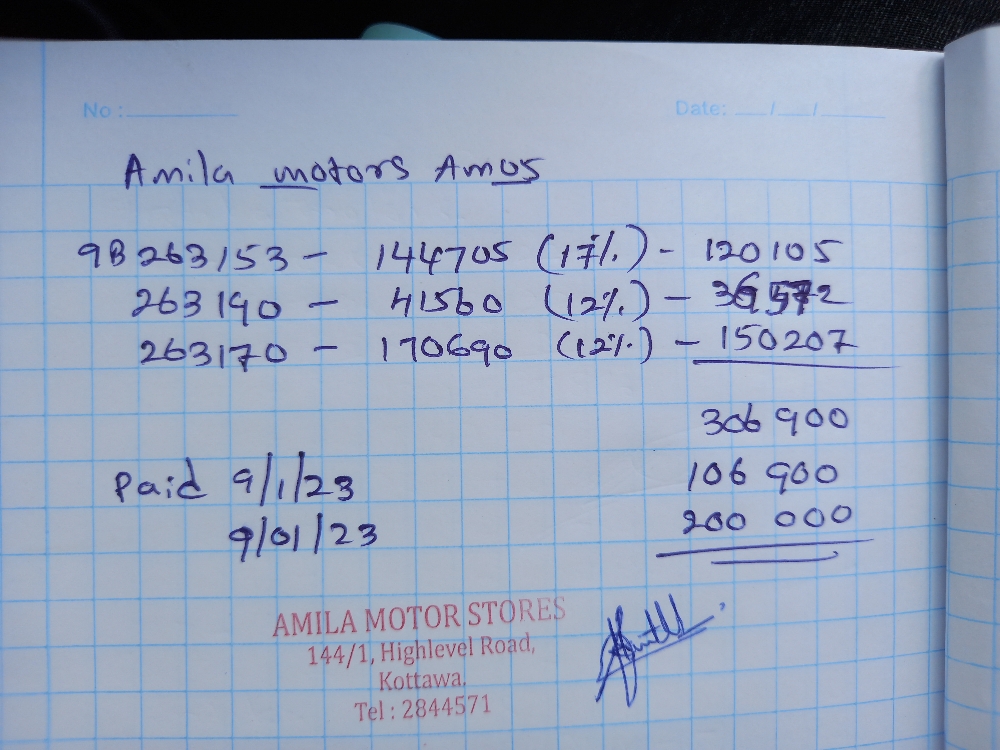 No : Date: / /
Amila motors Amos
9B 263153 - 144705 (17%) - 120105
263190 - 41560 (12%) - 36572
263170 - 170690 (12%) - 150207
306 900
Paid 9/1/23 106 900
9/01/23 200 000
AMILA MOTOR STORES
144/1, Highlevel Road,
Kottawa.
Tel : 2844571